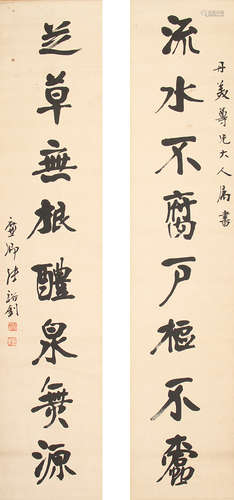 丹美尊兄大人属書
流水不腐戶樞不蠹
芝草無根醴泉無源
廉卿張裕釗